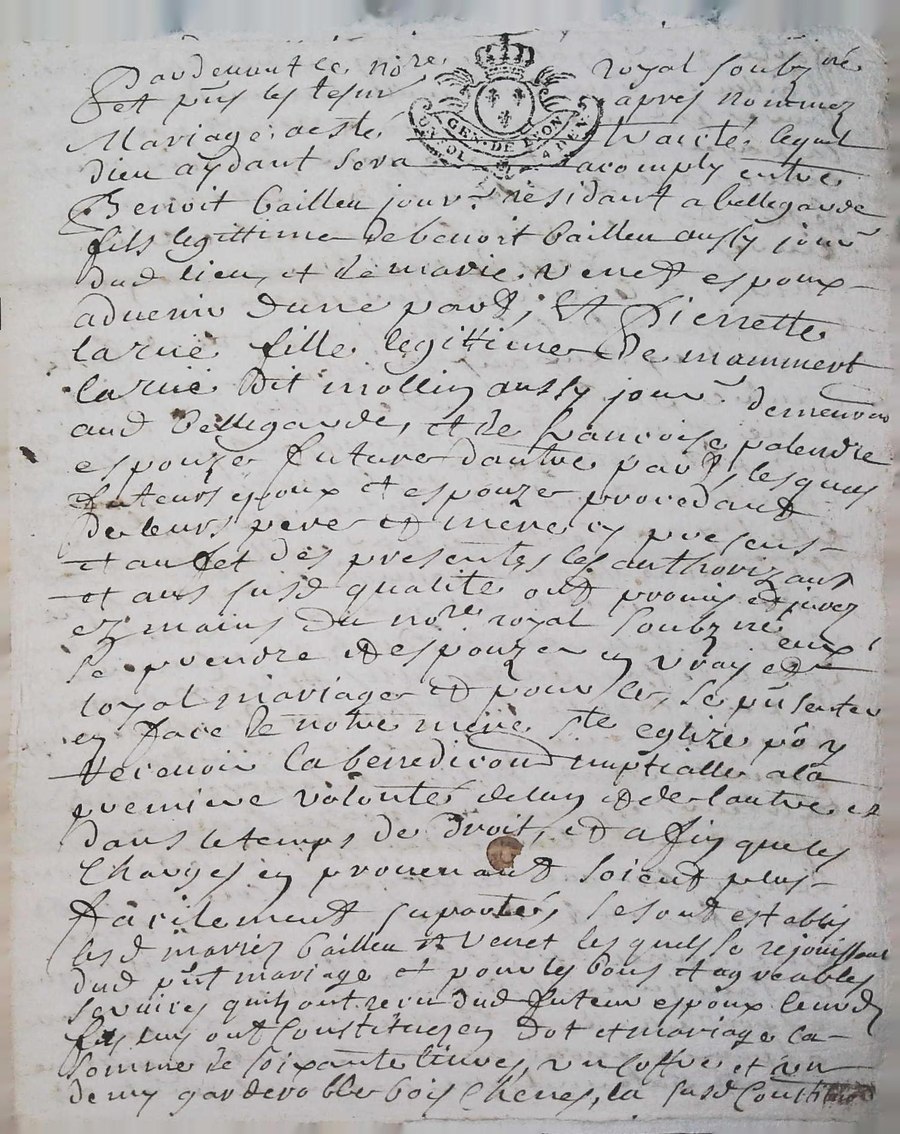 Pardevant le no.re royal soubz.né
Et pnts les tesm. apres nommez
Mariage a este traicté lequel
dieu aydant sera acomply entre
GEN. DE LYON
UN SOL 4 DE
Benoit bailleu jour.r residant a bellegarde
fils legittime de benoit bailleu aussy jour.r
dud lieu, et de marie venet espoux
aduenir dune part, Et Pierrette
larue fille legittime de mammert
larue dit mollin aussy jour.r demeurant
aud Bellegarde, et de francoise palendre
espouze future dautre part, lesquels
futeurs espoux et espouze procedant
de leurs pere et mere cy presens
et au fet des presentes les authorizant
et aus susd qualité ont promis et jurez
ez mains du no.re royal soubzné eux
se prendre et espouzer en vray et
loyal mariage et pour ce, se pnsenter
en face de notre mere s.te eglize po.r y
Recevoir la benediction nuptialle a la
premiere volonté de lun et de lautre et
dans le temps de droit, et afin que les
Charges en provenant soient plus
facilement suportés se sont establis
lesd mariez bailleu et Venet lesquels se rejouissant
dud pnt mariage et pour les bons et agreables
servives quils ont receu dud futeur espoux leurd
fils luy ont Constitues en dot et mariage la
somme de soixante livres, un coffre et un
demy garderobbe bois Chene, la susd Constitu